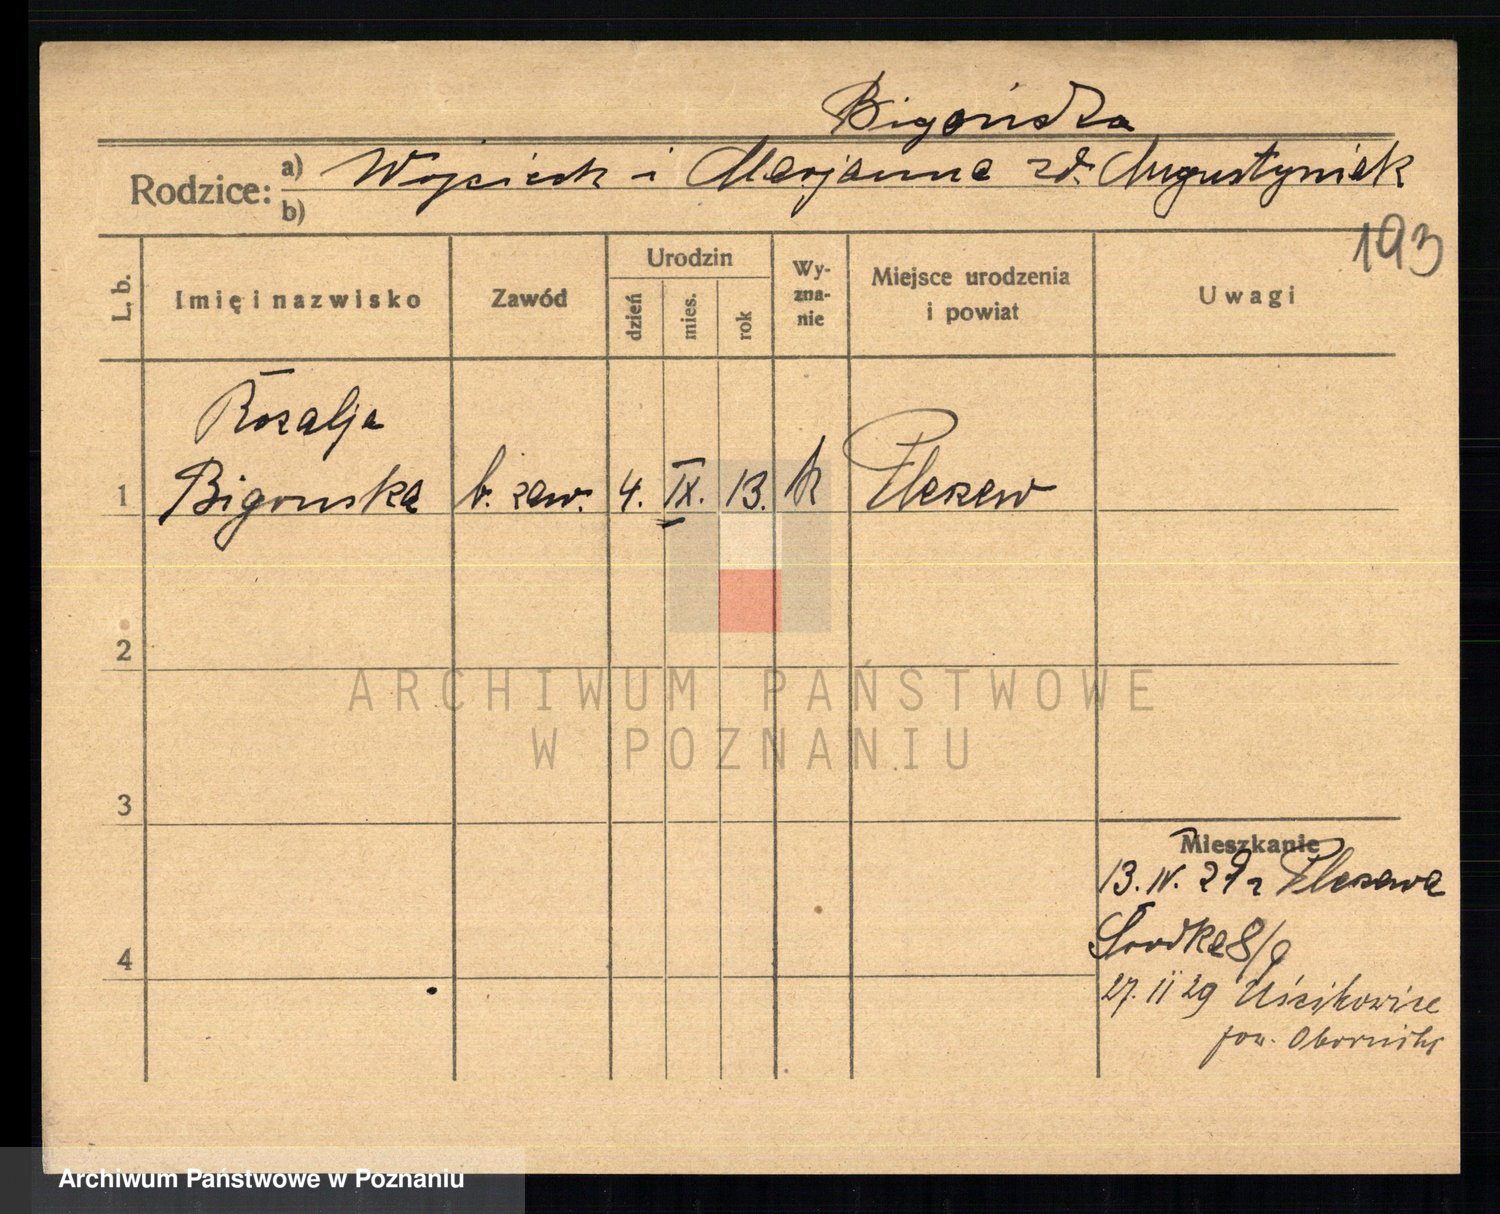 Bigońska
Rodzice: a) Wojciech i Marjanna zd. Augustyniak
b)
193
L. b.
Imię i nazwisko
Zawód
Urodzin
dzień
mies.
rok
Wy-
zna-
nie
Miejsce urodzenia
i powiat
Uwagi
Rozalja
1 Bigonska b. zaw. 4. IX. 13. k Pleszew
2
ARCHIWUM PAŃSTWOWE
W POZNANIU
3
Mieszkanie
13. IV. 27 z Pleszewa
Środka 8/9
4
27. II 29 Uścikowice
pow. Oborniki
Archiwum Państwowe w Poznaniu